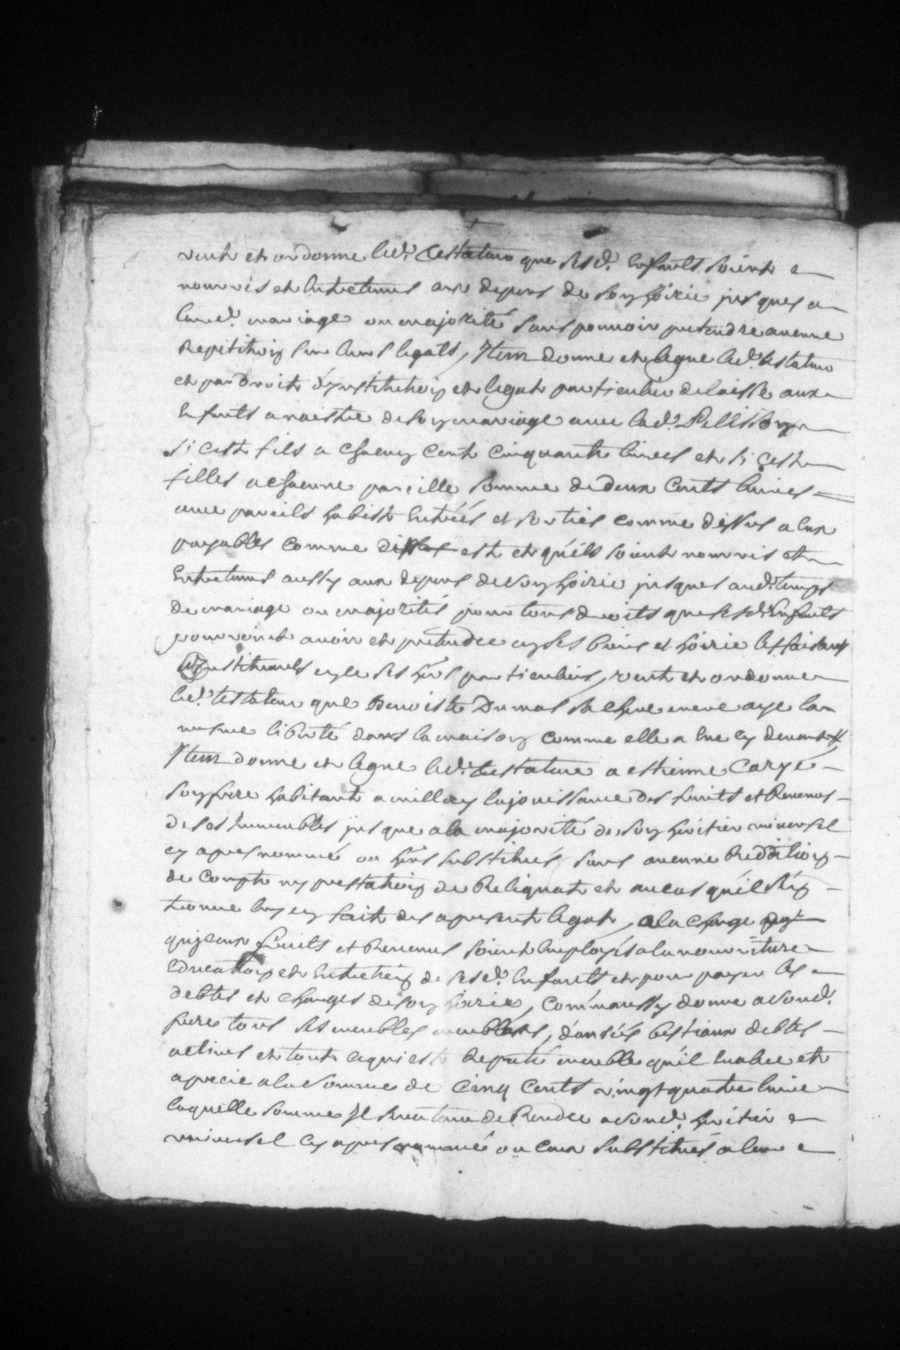 veut et ordonne led. testateur que sesd. enfants soient
nourris et entretenus aux depens de son hoirie jusques a
leurd. mariage ou majorité sans pouvoir pretendre aucune
repetition sur leurs legats, Item donne et legue led. testateur
et par droit d'institution et legat particulier delaisse aux
enfants a naestre de son mariage avec lad. Pellisson
si c'est fils a chacun cent cinquante livres et si c'est
filles a chacune pareille somme de deux cents livres
avec pareils habits entrées et sorties comme dessus a eux
payables comme est et qu'ils soient nourris et
entretenus aussy aux depens de son hoirie jusques aud. temps
de mariage ou majorités pour tous droits que sesd. enfants
pourroient avoir et pretendre en ses biens et hoirie les faisant
instituant en ce ses hers particuliers, veut et ordonne
led. testateur que Benoiste Dumas sa mere aye la
mesme liberté dans la maison comme elle a eue cy devant
Item donne et legue led. testateur a estienne Carye
son frere habitant a la jouissance des fruits et Revenus
de ses immeubles jusque a la majorité de son heritier universel
cy apres nommé ou hers substitués sans aucune Reddition
de compte ny prestation de Reliquat et au cas qu'il
luy en fait des a present legat, a la charge
qu'iceux fruits et Revenus soient employés a la nourriture
education et entretien de sesd. enfants et pour payer les
debtes et charges de son hoirie, comm'aussy donne a sond.
frere tous ses meubles meublans, danrées bestiaux debtes
actives et tout ce qui est reputé meuble qu'il evalue et
apecie a la somme de cinq cents vingt quatre livres
laquelle somme Il sera tenu de Rendre a sond. heritier
universel cy apres nommé ou ceux substitués a leur